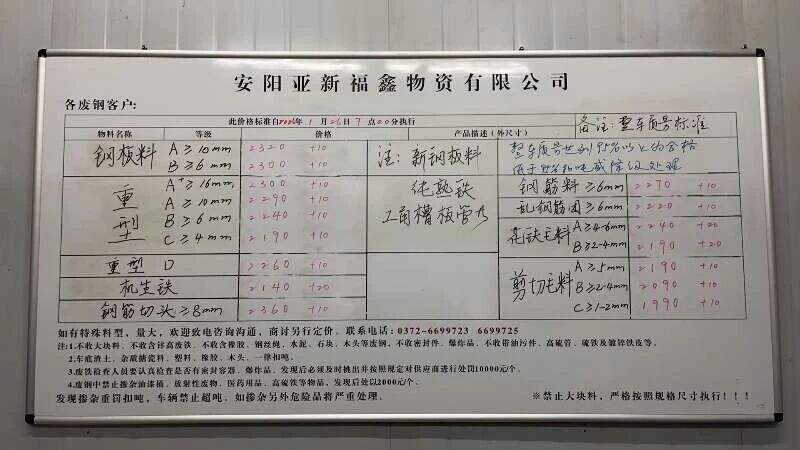 安阳亚新福鑫物资有限公司
各废钢客户:
此价格标准自2026年1月26日7点00分执行
备注: 整车质号标准
物料名称 等级 价格 产品描述（外尺寸）
钢板料 A≥10mm 2320 +10
B≥6mm 2300 +10
重型 A+≥16mm 2300 +10
A≥10mm 2290 +10
B≥6mm 2240 +10
C≥4mm 2190 +10
重型 D 2260 +10
机生铁 2140 +20
钢筋切头≥8mm 2360 +10
注: 新钢板料
纯熟铁
工角槽板管为
95%以上为合格
钢筋料≥6mm 2270 +10
乱钢筋团≥6mm 2220 +10
花铁毛料 A≥4-6mm 2240 +20
B≥2-4mm 2190 +20
剪切毛料 A≥5mm 2190 +10
B≥2-4mm 2090 +10
C≥1-2mm 1990 +10
如有特殊料型，量大，欢迎致电咨询沟通，商讨另行定价。联系电话：0372-6699723 6699725
注:1.不收大块料、不收含锌高废铁、不收含橡胶、钢丝绳、水泥、石块、木头等废钢，不收密封件、爆炸品、不收带油污件、高硫管、硫铁及镀锌铁皮等。
2.车底渣土、杂质搪瓷料：塑料、橡胶、木头、一律扣吨。
3.废铁检查人员要认真检查是否有密封容器、爆炸品、发现后必须及时挑出并按照规定对供应商进行处罚10000元/个。
4.废钢中禁止掺杂油漆桶、放射性废物、医药用品、高硫铁等物品，发现后处以2000元/个。
发现掺杂重罚扣吨，车辆禁止超吨。如掺杂另外危险品将严重处理。
※禁止大块料，严格按照规格尺寸执行！！！